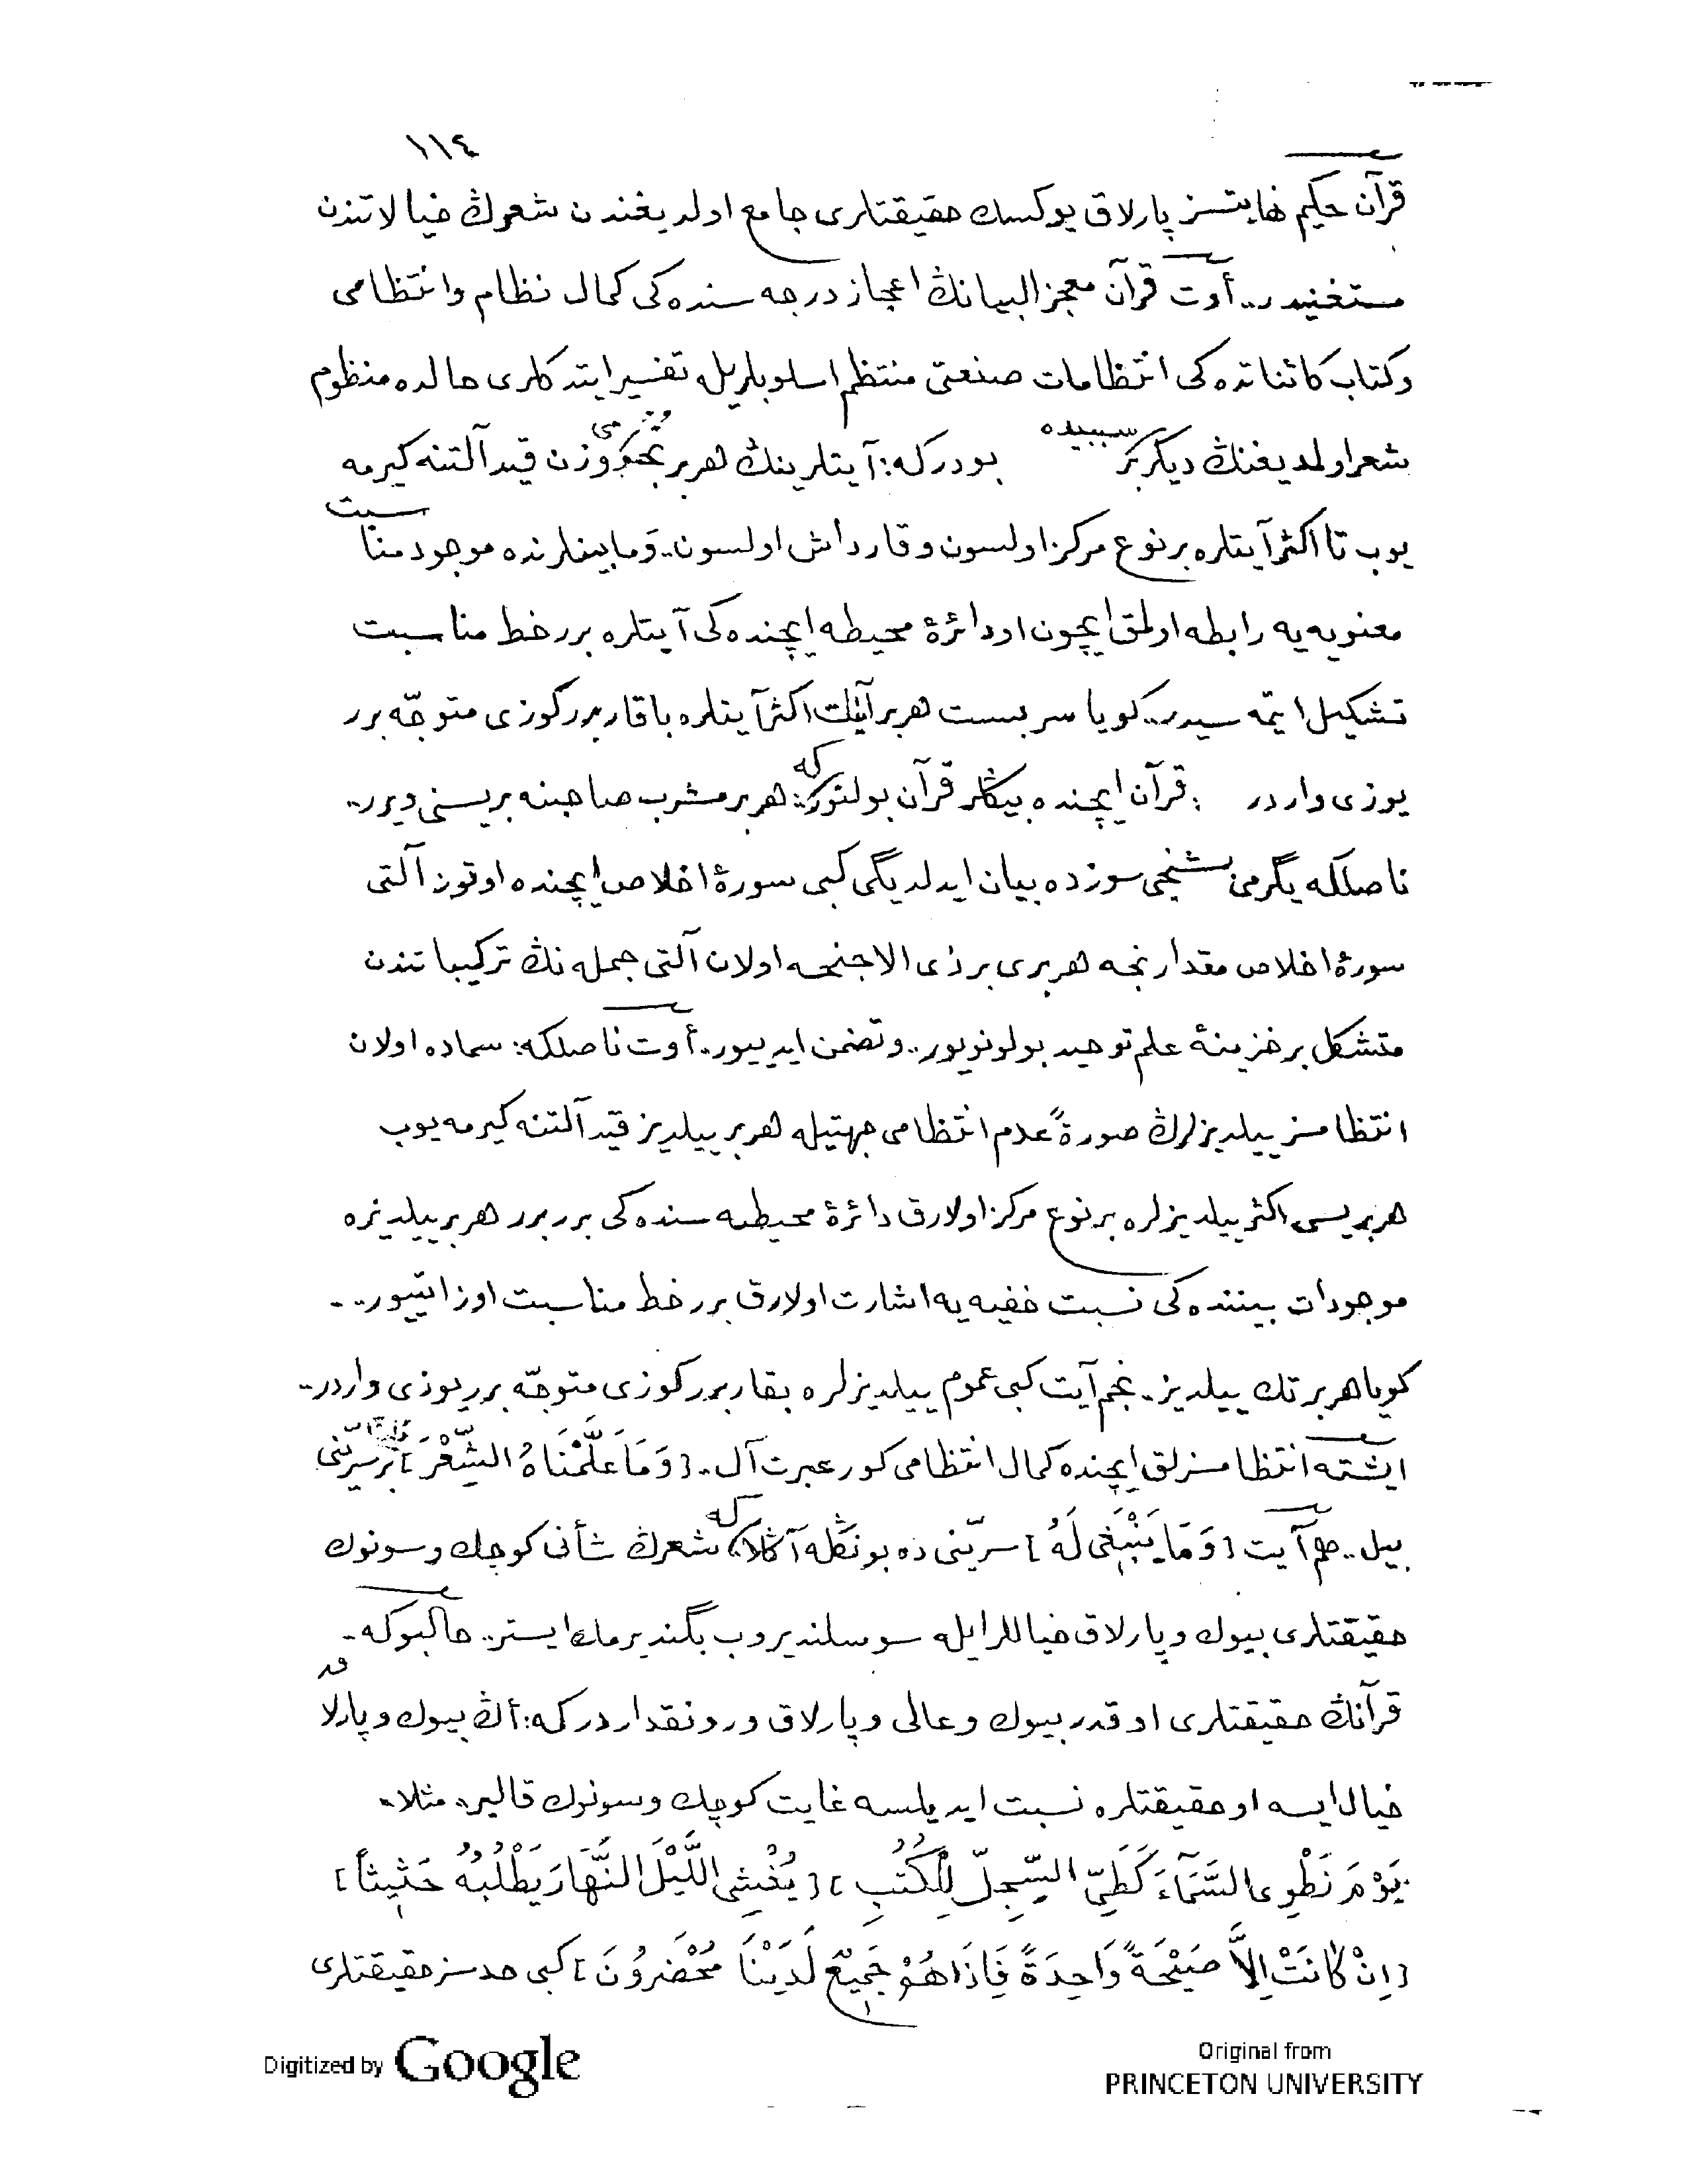 ١١٤
قرآن حكيم نهايتسز پارلاق يوكسك حقيقتلرى جامع اولديغندن شعرڭ خيالاتندن
مستغنيدر.. أوت قرآن معجز البيانڭ اعجاز درجه سنده كى كمال نظام وانتظامى
وكتاب كائناتده كى انتظامات صنعتى منتظم اسلوبلريله تفسير ايتدكلرى حالده منظوم
شعر اولمديغنڭ ديگر بر سببيده بودركه: آيتلرينڭ هر بر نجمى وزن قيد آلتنه كيرمه
يوب تا اكثر آيتلره بر نوع مركز اولسون و قارداش اولسون.. وَمابينلرنده موجود مناسبت
معنويه يه رابطه اولمق ايچون او دائرۀ محيطه ايچنده كى آيتلره برر خط مناسبت
تشكيل ايتمه سيدر.. كويا سربست هر بر آيتڭ اكثر آيتلره باقار برر كوزى متوجّه برر
يوزى واردر : قرآن ايچنده بيڭلر قرآن بولنور كه: هر بر مشرب صاحبنه بريسنى ويرر..
ناصلكه يگرمى بشنجى سوزده بيان ايدلديگى كبى سورۀ اخلاص ايچنده اوتوز آلتى
سورۀ اخلاص مقدارنجه هر برى بر ذى الاجنحه اولان آلتى جمله نڭ تركيباتندن
متشكل بر خزينۀ علم توحيد بولونويور.. و تضمن ايدييور.. أوت ناصلكه: سماده اولان
انتظامسز ييلديزلرڭ صورةً عدم انتظامى جهتيله هر بر ييلديز قيد آلتنه كيرمه يوب
هر بريسى اكثر ييلديزلره بر نوع مركز اولارق دائرۀ محيطه سنده كى برر برر هر بر ييلديزه
موجودات بيننده كى نسبت خفيه يه اشارت اولارق برر خط مناسبت اوزاتييور..
كويا هر بر تك ييلديز. نجم آيت كبى عموم ييلديزلره بقار برر كوزى متوجّه برر يوزى واردر..
ايشته انتظامسزلق ايچنده كمال انتظامى كور عبرت آل.. [وَمَا عَلَّمْنَاهُ الشِّعْرَ] بر سرّينى
بيل.. هم آيت [وَمَا يَنْبَغِى لَهُ] سرّينى ده بونڭله آڭلا كه شعرڭ شأنى كوچك و سونوك
حقيقتلرى بيوك و پارلاق خياللر ايله سوسلنديروب بگنديرمك ايستر.. حالبوكه.
قرآنڭ حقيقتلرى او قدر بيوك و عالى و پارلاق و رونقداردركه: أڭ بيوك و پارلاق
خيال ايسه او حقيقتلره نسبت ايديلسه غايت كوچك و سونوك قالير. مثلا.
يَوْمَ نَطْوِى السَّمَآءَ كَطَىِّ السِّجِلِّ لِلْكُتُبِ ] [ يُغْشِى اللَّيْلَ النَّهَارَ يَطْلُبُهُ حَثِيثاً ]
[ اِنْ كَانَتْ اِلاَّ صَيْحَةً وَاحِدَةً فَاِذَا هُمْ جَمِيعٌ لَدَيْنَا مُحْضَرُونَ ] كبى حدسز حقيقتلرى
Digitized by Google
Original from
PRINCETON UNIVERSITY